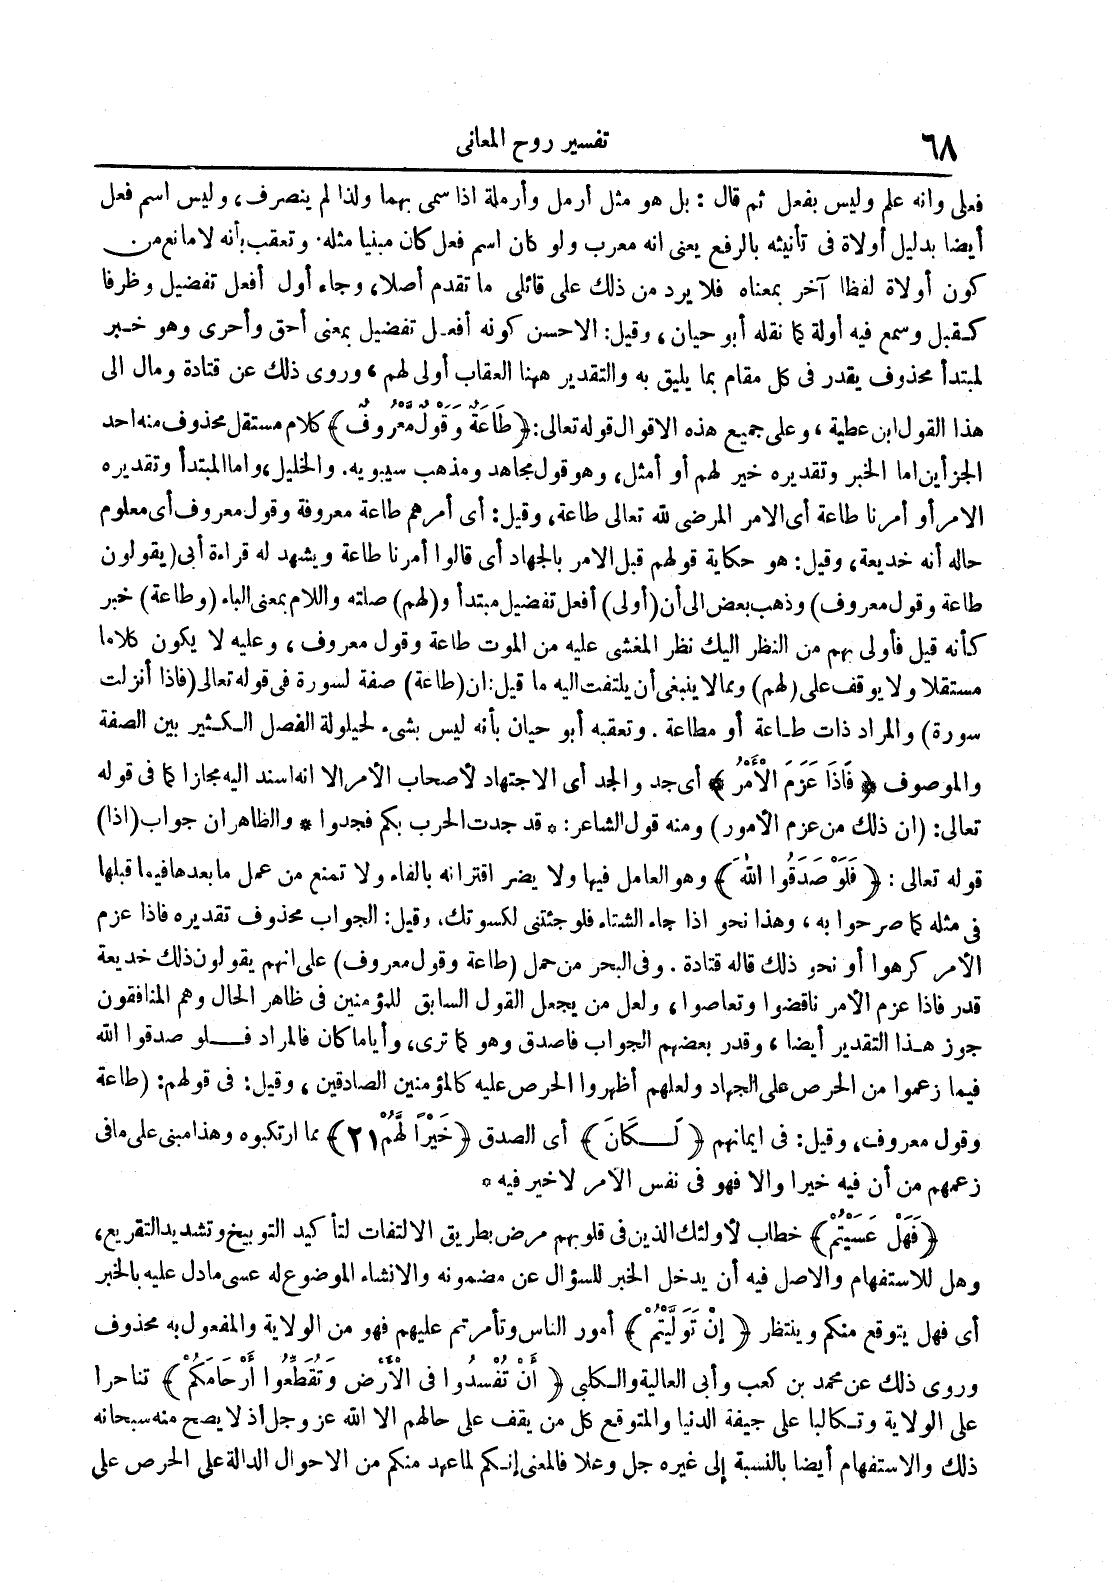 ٦٨
تفسير روح المعانى
فعلى وانه علم وليس بفعل ثم قال : بل هو مثل أرمل وأرملة اذا سمى بهما ولذا لم ينصرف، وليس اسم فعل
أيضا بدليل أولاة فى تأنيثه بالرفع يعنى انه معرب ولو كان اسم فعل كان مبنيا مثله· وتعقب بأنه لا مانع من
كون أولاة لفظا آخر بمعناه فلا يرد من ذلك على قائلى ما تقدم أصلا، وجاء أول أفعل تفضيل وظرفا
كـقبل وسمع فيه أولة كما نقله أبو حيان ، وقيل: الاحسن كونه أفعـل تفضيل بمعنى أحق وأحرى وهو خـبر
لمبتدأ محذوف يقدر فى كل مقام بما يليق به والتقدير ههنا العقاب أولى لهم ، وروى ذلك عن قتادة ومال الى
هذا القول ابن عطية ، وعلى جميع هذه الاقوال قوله تعالى: ﴿ طَاعَةٌ وَقَوْلٌ مَّعْرُوفٌ ﴾ كلام مستقل محذوف منه احد
الجزأين اما الخبر وتقديره خير لهم أو أمثل، وهو قول مجاهد ومذهب سيبويه. والخليل، واما المبتدأ وتقديره
الامر أو أمرنا طاعة أى الامر المرضى لله تعالى طاعة، وقيل: أى أمرهم طاعة معروفة وقول معروف أى معلوم
حاله أنه خديعة، وقيل: هو حكاية قولهم قبل الامر بالجهاد أى قالوا أمرنا طاعة ويشهد له قراءة أبى (يقولون
طاعة وقول معروف) وذهب بعض الى أن (أولى) أفعل تفضيل مبتدأ و(لهم) صلته واللام بمعنى الباء (وطاعة) خبر
كأنه قيل فأولى بهم من النظر اليك نظر المغشى عليه من الموت طاعة وقول معروف ، وعليه لا يكون كلاما
مستقلا ولا يوقف على (لهم) ومما لا ينبغى أن يلتفت اليه ما قيل: ان (طاعة) صفة لسورة فى قوله تعالى (فاذا أنزلت
سورة) والمراد ذات طـاعة أو مطاعة . وتعقبه أبو حيان بأنه ليس بشىء لحيلولة الفصل الـكـثير بين الصفة
والموصوف ﴿ فَاذَا عَزَمَ الْأَمْرُ ﴾ أى جد والجد أى الاجتهاد لأصحاب الأمر الا انه اسند اليه مجازا كما فى قوله
تعالى: (ان ذلك من عزم الأمور) ومنه قول الشاعر: * قد جدت الحرب بكم فجدوا * والظاهر ان جواب (اذا)
قوله تعالى : ﴿ فَلَوْ صَدَقُوا اللهَ ﴾ وهو العامل فيها ولا يضر اقترانه بالفاء ولا تمنع من عمل ما بعدها فيما قبلها
فى مثله كما صرحوا به ، وهذا نحو اذا جاء الشتاء فلو جئتنى لكسوتك، وقيل: الجواب محذوف تقديره فاذا عزم
الأمر كرهوا أو نحو ذلك قاله قتادة . وفى البحر من حمل (طاعة وقول معروف) على انهم يقولون ذلك خديعة
قدر فاذا عزم الأمر ناقضوا وتعاصوا، ولعل من يجعل القول السابق للمؤمنين فى ظاهر الحال وهم المنافقون
جوز هـذا التقدير أيضا ، وقدر بعضهم الجواب فاصدق وهو كما ترى، وأياما كان فالمراد فـــلو صدقوا الله
فيما زعموا من الحرص على الجهاد ولعلهم أظهروا الحرص عليه كالمؤمنين الصادقين ، وقيل: فى قولهم: (طاعة
وقول معروف، وقيل: فى ايمانهم ﴿ لَــكَانَ ﴾ أى الصدق ﴿ خَيْراً لَّهُمْ ٢١ ﴾ مما ارتكبوه وهذا مبنى على مافى
زعمهم من أن فيه خيرا والا فهو فى نفس الأمر لا خير فيه *
﴿ فَهَلْ عَسَيْتُمْ ﴾ خطاب لأولئك الذين فى قلوبهم مرض بطريق الالتفات لتأكيد التوبيخ وتشديد التقريع،
وهل للاستفهام والاصل فيه أن يدخل الخبر للسؤال عن مضمونه والانشاء الموضوع له عسى مادل عليه بالخبر
أى فهل يتوقع منكم وينتظر ﴿ إِنْ تَوَلَّيْتُمْ ﴾ أمور الناس وتأمرتم عليهم فهو من الولاية والمفعول به محذوف
وروى ذلك عن محمد بن كعب وأبى العالية والـكلبى ﴿ أَنْ تُفْسدُوا فى الْأَرْض وَتُقَطِّعُوا أَرْحَامَكُمْ ﴾ تناحرا
على الولاية وتـكالبا على جيفة الدنيا والمتوقع كل من يقف على حالهم الا الله عز وجل اذ لا يصح منه سبحانه
ذلك والاستفهام أيضا بالنسبة إلى غيره جل وعلا فالمعنى إنـكم لما عهد منكم من الاحوال الدالة على الحرص على